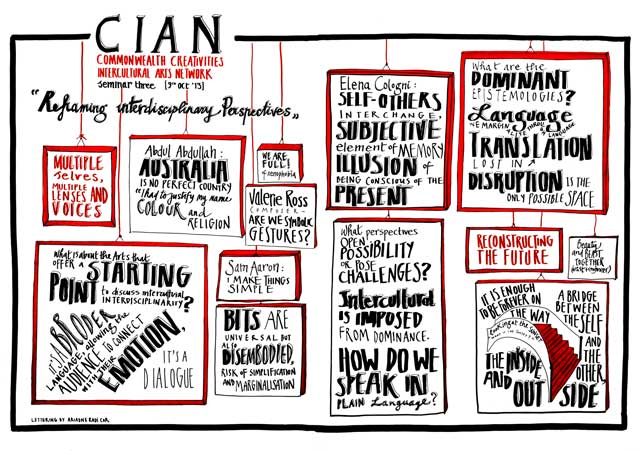 CIAN
COMMONWEALTH CREATIVITIES
INTERCULTURAL ARTS NETWORK
seminar three [9TH OCT '15]
"Reframing interdisciplinary Perspectives"
MULTIPLE
selves,
MULTIPLE
LENSES AND
VOICES
Abdul Abdullah:
AUSTRALIA
IS NO PERFECT COUNTRY
"I had to justify my name
COLOUR and
RELIGION
WE ARE
FULL!
of xenophobia
Valerie Ross
COMPOSER
ARE WE SYMBOLIC
GESTURES?
Sam Aaron:
I MAKE THINGS
SIMPLE
BITS ARE
UNIVERSAL BUT
ALSO
DISEMBODIED,
RISK OF SIMPLIFICATION
AND
MARGINALISATION
What is about the Arts that
OFFER A STARTING
POINT to discuss intercultural
INTERDISCIPLINARITY?
IT'S A BRODER
LANGUAGE, allowing the
AUDIENCE TO CONNECT
WITH THEIR
EMOTION,
IT'S A
DIALOGUE
Elena Cologni:
SELF-OTHERS
INTERCHANGE,
SUBJECTIVE
element of MEMORY
ILLUSION of
BEING CONSCIOUS OF THE
PRESENT
What perspectives
OPEN
POSSIBILITY
OR POSE
CHALLENGES?
Intercultural
IS IMPOSED
FROM DOMINANCE.
HOW DO WE
SPEAK IN
PLAIN Language?
What are the
DOMINANT
EPISTEMOLOGIES?
Language
WE MARGINALISE THROUGH LANGUAGE
TRANSLATION
LOST IN
DISRUPTION IS THE
ONLY POSSIBLE SPACE
RECONSTRUCTING
THE FUTURE
Beauty
and BEAST
TOGETHER
IT IS ENOUGH
TO BE EVER ON
THE WAY
A BRIDGE
BETWEEN
THE SELF
AND
THE
OTHER,
Looking at the
THE INSIDE
AND OUT
SIDE
LETTERING BY